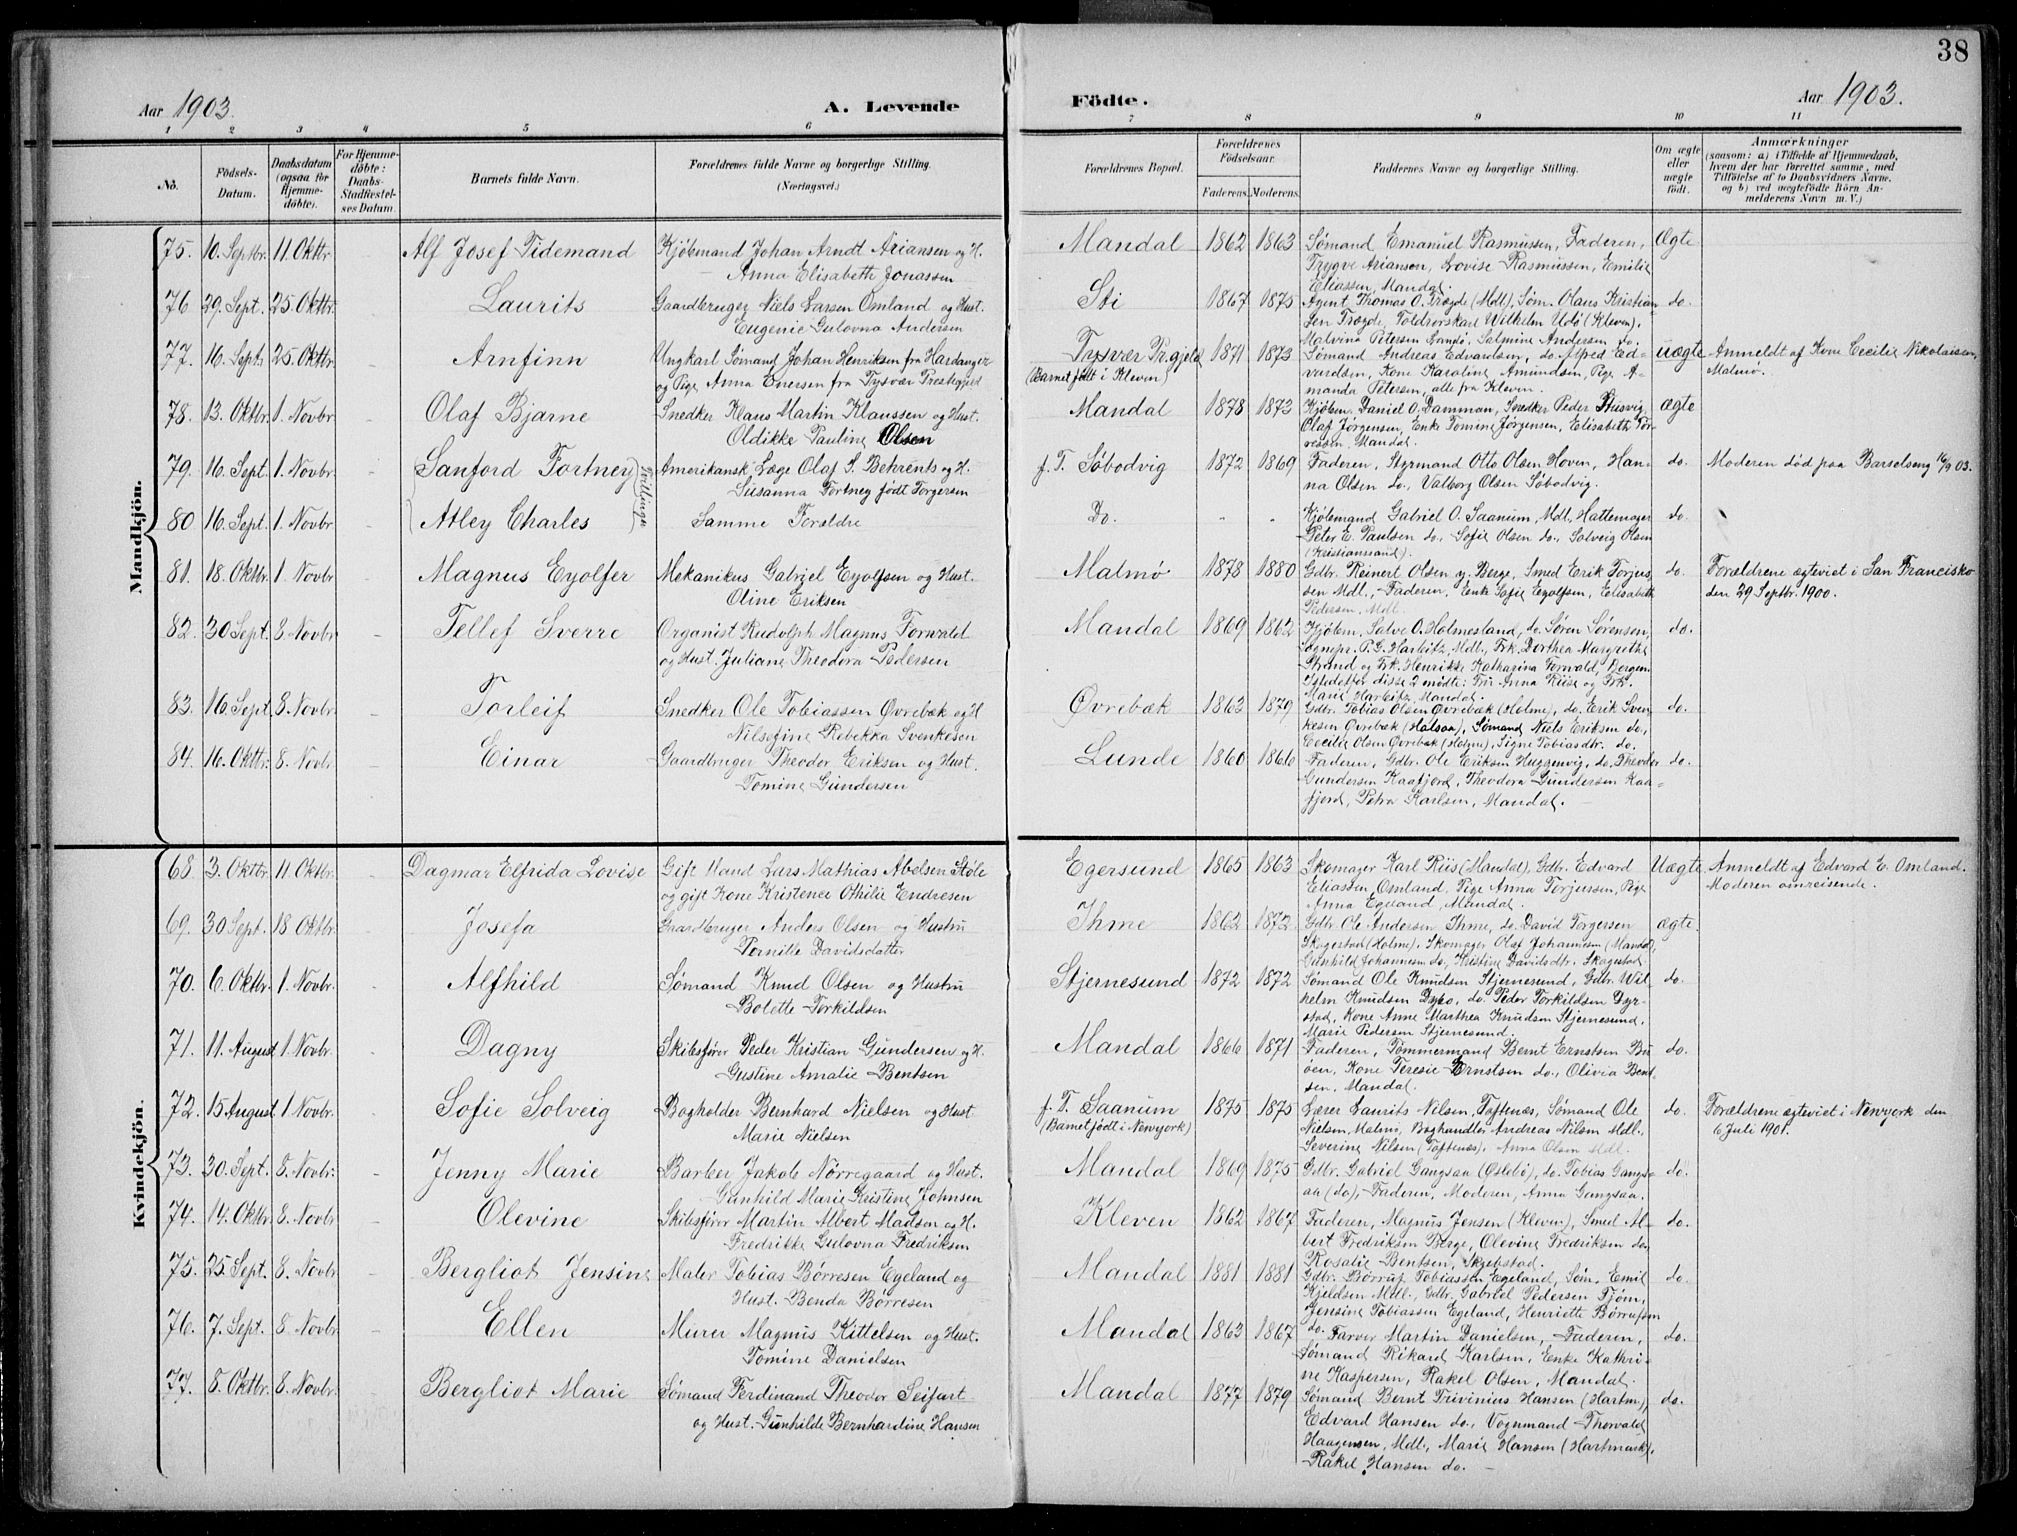 38
Aar 1903.
A. Levende
Födte.
Aar 1903.
1 2 3 4 5 6 7 8 9 10 11
No.
Födsels-Datum.
Daabsdatum (ogsaa for Hjemmedöbte).
For Hjemmedöbte: Daabs-Stadfæstelses Datum.
Barnets fulde Navn.
Forældrenes fulde Navne og borgerlige Stilling. (Næringsvei.)
Forældrenes Bopæl.
Forældrenes Födselsaar.
Faderens.
Moderens.
Faddernes Navne og borgerlige Stilling.
Om ægte eller uægte født.
Anmærkninger
(saasom: a) i Tilfælde af Hjemmedaab, hvem der har forrettet samme, med Tilföielse af to Daabsvidners Navne. og b) ved uægtefödte Börn Anmelderens Navn m. V.)
Mandkjön.
75. 10. Septbr. 11. Oktbr. Alf Josef Tidemand
Kjøbmand Johan Arndt Ariansen og H.
Anna Elisabeth Jonassen
Mandal 1862 1863
Sømand Emanuel Rasmussen, Faderen,
Trygve Ariansen, Lovise Rasmussen, Emilie
Eliassen, Mandal.
Ægte
76 29. Sept. 25. Oktbr. Laurits
Gaardbruger Niels Larsen Omland og Hust.
Eugenie Gulovna Andersen
Sti 1867 1875
Agent Thomas O. Trægde (Mdl), Søm. Olaus Kristian
sen Trægde, Toldrorskarl Wilhelm Udø (Kleven).
Malvina Petersen Landø, Salmine Andersen do.
do.
77. 16. Sept. 25. Oktbr. Arnfinn
Ungkarl Sømand Johan Henriksen fra Hardanger
og Pige Anna Enersen fra Tysvær Prestegjæld
Tysvær Pr.gjeld (Barnet født i Kleven) 1871 1873
Sømand Andreas Edvardsen, do. Alfred Ed-
vardsen, Kone Karoline Amundsen, Pige A-
manda Petersen, alle fra Kleven.
uægte
Anmeldt af Kone Cecilie Nikolaisen,
Malmø.
78. 13. Oktbr. 1. Novbr. Olaf Bjarne
Snedker Klaus Martin Klaussen og Hust.
Oldikke Pauline Olsen
Mandal 1878 1873
Kjøbm. Daniel O. Damman, Snedker Peder Husvig,
Olaf Jørgensen, Enke Tomine Jørgensen, Elisabeth Tor-
ressen, Mandal.
ægte
79. 16. Sept. 1. Novbr. Sanford Fortney (Tvillinge)
Amerikansk Læge Olaf S. Behrents og H.
Susanna Fortney født Torgersen
f. T. Søbodvig 1872 1869
Faderen, Styrmand Otto Olsen Hoven, Han-
na Olsen do., Valborg Olsen Søbodvig.
do.
Moderen død paa Barselseng 16/9 03.
80 16. Sept. 1. Novbr. Atley Charles
Samme Forældre
Do. " "
Kjøbmand Gabriel O. Saanum, Mdl, Hattemager
Peter E. Paulsen do, Sofie Olsen do., Solveig Olsen
(Kristianssand).
do.
81. 18. Oktbr. 1. Novbr. Magnus Eyolfer
Mekanikus Gabriel Eyolfsen og Hust.
Oline Eriksen
Malmø 1878 1880
Gdbr. Reinert Olsen y. Berge, Smed Erik Torjus
sen Mdl., Faderen, Enke Sofie Eyolfsen, Elisabeth
Pedersen, Mdl.
do.
Forældrene ægteviet i San Francisko
den 29 Septbr. 1900.
82. 30 Sept. 8. Novbr. Tellef Sverre
Organist Rudolph Magnus Forwald
og Hust. Juliane Theodora Pedersen
Mandal 1869 1862
Kjøbm. Salve O. Holmesland, do. Søren Sørensen,
Sognepr. P. G. Harbitz, Mdl., Frk. Dorthea Margrethe
Strand og Frk. Henrikke Katharina Forwald, Bergen.
Istedetfor disse 2 mødte: Fru Anna Riise og Frk.
Marie Harbitz, Mandal.
do.
83. 16. Sept. 8. Novbr. Torleif
Snedker Ole Tobiassen Øvrebæk og H
Nilsefine Rebekka Svenkesen
Øvrebæk 1863 1879
Gdbr. Tobias Olsen Øvrebæk (Holme), do. Erik Sven-
kesen Øvrebæk (Halsaa), Sømand Niels Eriksen do,
Cecilie Olsen Øvrebæk (Holme), Signe Tobiasdtr. do.
do.
84. 16. Oktbr. 8. Novbr. Einar
Gaardbruger Theodor Eriksen og Hust.
Tomine Gundersen
Lunde 1860 1866
Faderen, Gdbr. Ole Eriksen Huggenvig, do. Theodor
Gundersen Kaafjord, Theodora Gundersen Kaa-
fjord, Petra Karlsen, Mandal.
do.
Kvindekjön.
68. 3. Oktbr. 11. Oktbr. Dagmar Elfrida Lovise
Gift Mand Lars Mathias Abelsen Støle
og gift Kone Kristence Othilie Endresen
Egersund 1865 1863
Skomager Karl Riis (Mandal), Gdbr. Edvard
Eliassen Omland, Pige Anna Torjussen, Pige
Anna Egeland, Mandal.
Uægte
Anmeldt af Edvard E. Omland.
Moderen omreisende.
69. 30 Sept. 18 Oktbr. Josefa
Gaardbruger Anders Olsen og Hustru
Pernille Davidsdatter
Ihme 1862 1872
Gdbr. Ole Andersen Ihme, do. David Torgersen
Skogestad (Holme), Skomager Olaf Johannesen (Mandal),
Gunhild Johannesen do, Kristine Davidsdtr. Skogestad.
ægte.
70. 6. Oktbr. 1. Novbr. Alfhild
Sømand Knud Olsen og Hustru
Bolette Torkildsen
Stjernesund 1872 1872
Sømand Ole Knudsen Stjernesund, Gdbr. Wil-
helm Knudsen Dybo, do. Peder Torkildsen Dyr-
stad, Kone Anne Marthea Knudsen Stjernesund,
Marie Pedersen Stjernesund.
do.
71. 11. August 1. Novbr. Dagny
Skibsfører Peder Kristian Gundersen og H.
Gustine Amalie Bentsen
Mandal 1866 1871
Faderen, Tømmermand Bernt Ernstsen Bu-
øen, Kone Teresie Ernstsen do., Olivia Bent-
sen, Mandal.
do.
72. 15 August 1. Novbr. Sofie Solveig
Bogholder Bernhard Nielsen og Hust
Marie Nielsen
f. T. Saanum (Barnet født i Newyork) 1875 1875
Lærer Laurits Nilsen, Toftenæs, Sømand Ole
Nielsen, Malmø, Boghandler Andreas Nilsen Mdl.,
Severine Nilsen (Toftenæs), Anna Olsen Mdl.
do.
Forældrene ægteviet i Newyork den
6 Juli 1901.
73. 30. Sept. 8. Novbr. Jenny Marie
Barber Jakob Nørregaard og Hust.
Gunhild Marie Kristine Johnsen
Mandal 1869 1875
Gdbr. Gabriel Gangsaa (Øslebø), do. Tobias Gangs-
aa (do), Faderen, Moderen, Anna Gangsaa.
do.
74. 14. Oktbr. 8. Novbr. Olevine
Skibsfører Martin Albert Madsen og H.
Fredrikke Gulovna Fredriksen
Kleven 1862 1867
Faderen, Magnus Jensen (Kleven), Smed Al-
bert Fredriksen Berge, Olevine Fredriksen do,
Rosalie Bentsen, Skjebstad.
do.
75. 25. Sept. 8. Novbr. Bergliot Jensine
Maler Tobias Børresen Egeland og
Hust. Benda Børresen
Mandal 1881 1881
Gdbr. Børruf Tobiassen Egeland, Søm. Emil
Kjeldsen Mdl., Gdbr. Gabriel Pedersen Fjøm,
Jensine Tobiassen Egeland, Henriette Børrufsen
do.
do.
76. 7. Sept. 8. Novbr. Ellen
Murer Magnus Kittelsen og Hust.
Tomine Danielsen
Mandal 1863 1867
Farver Martin Danielsen, Faderen,
Sømand Rikard Karlsen, Enke Kathri-
ne Kaspersen, Rakel Olsen, Mandal.
do.
77. 8. Oktbr. 8. Novbr. Bergliot Marie
Sømand Ferdinand Theodor Seifart
og Hust. Gunhilde Bernhardine Hansen
Mandal 1877 1879
Sømand Bernt Trivinius Hansen (Hartm.),
Edvard Hansen do., Vognmand Thorvald
Haagensen, Mdl., Marie Hansen (Hartmark),
Rakel Hansen do.
do.